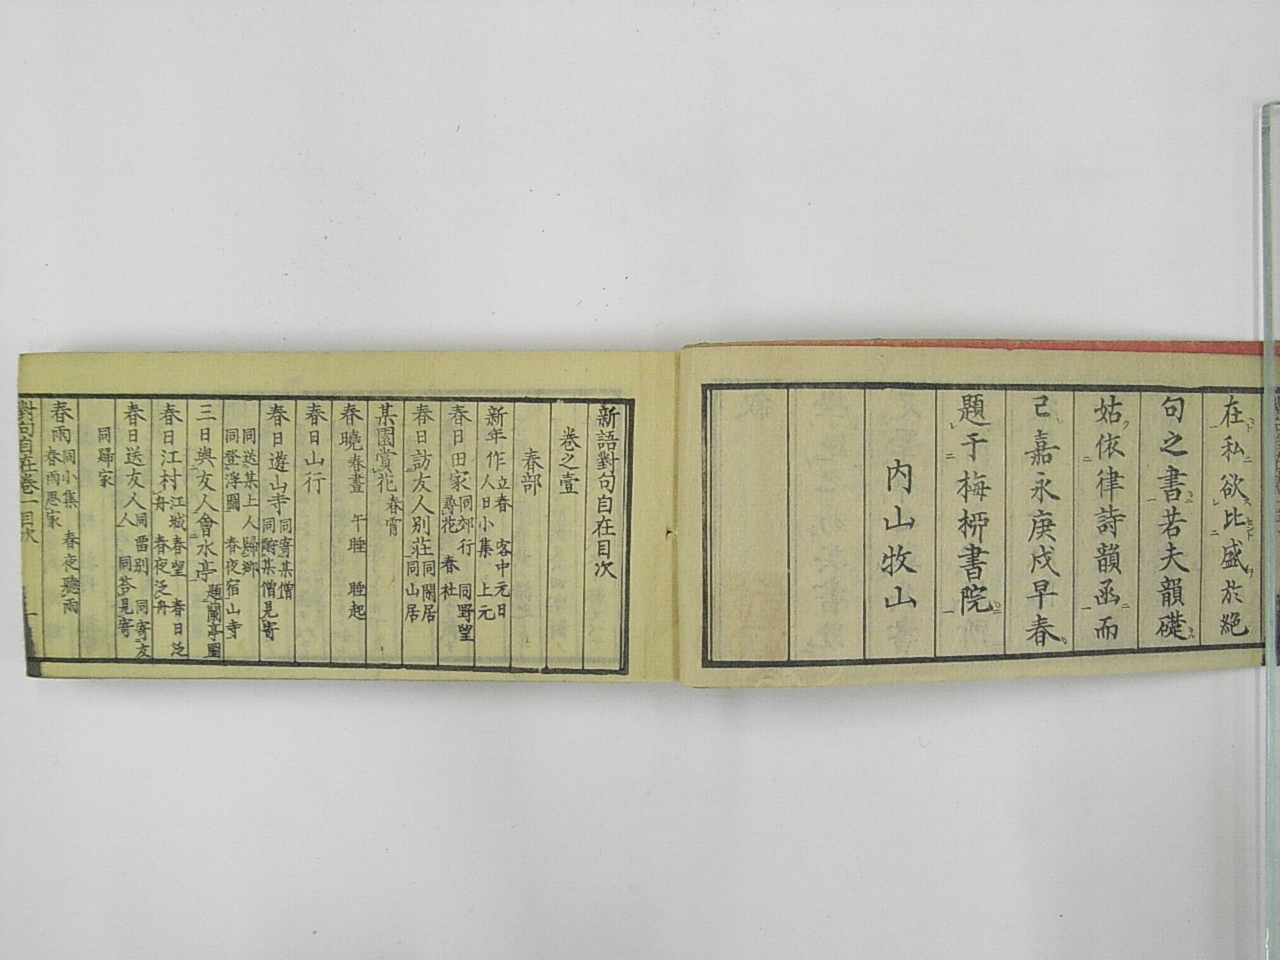 在私欲比盛於絕
句之書若夫韻礎
姑依律詩韻函而
已嘉永庚戌早春
題于梅栁書院
内山牧山
新語對句自在目次
卷之壹
春部
新年作 立春 客中元日 人日小集 上元
春日田家 同郊行 同野望 尋花 春社
春日訪友人別莊 同閑居 同山居
某園賞花 春宵
春曉 春晝 午睡 睡起
春日山行
春日遊山寺 同寄某僧 同訪某僧見寄
同送某上人歸鄉 同登浮圖 春夜宿山寺
三日與友人會水亭 題蘭亭圖
春日江村 江城春望 春日泛舟 春夜泛舟
春日送友人 同留別 同寄友人 同答見寄
同歸家
春雨 同小集 春夜聽雨 春雨思家
對句自在卷一目次 一